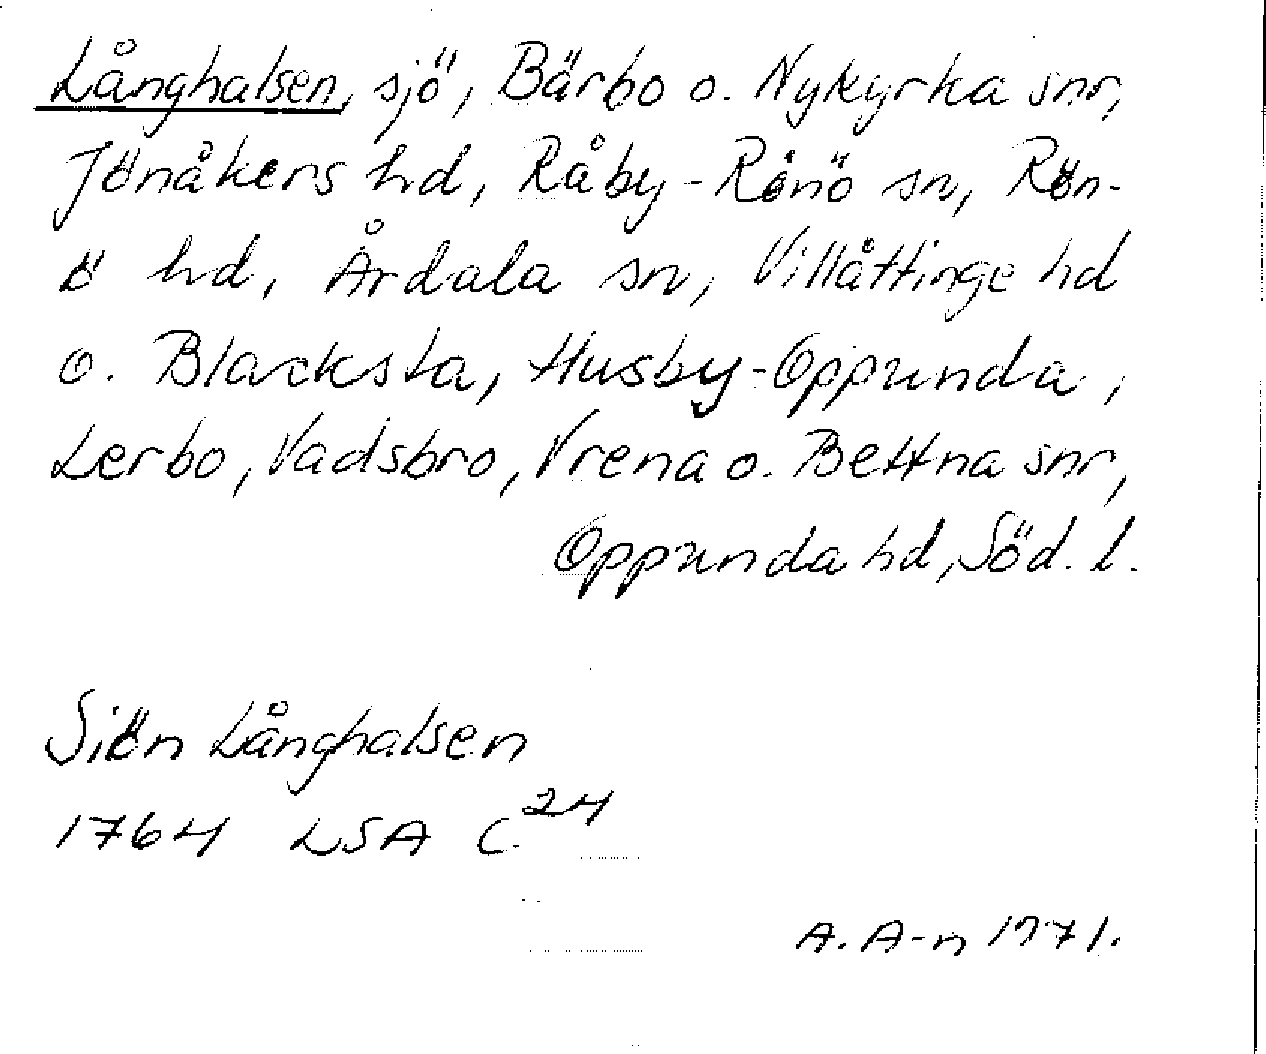 Långhalsen, sjö, Bärbo o. Nykyrka snr,
Jönåkers hd, Råby-Rönö sn, Rön-
ö hd, Årdala sn, Villåttinge hd
o. Blacksta, Husby-Oppunda,
Lerbo, Vadsbro, Vrena o. Bettna snr,
Oppunda hd, Söd. l.
Siön Långhalsen
1764 LSA C.24
A. A-n 1971.